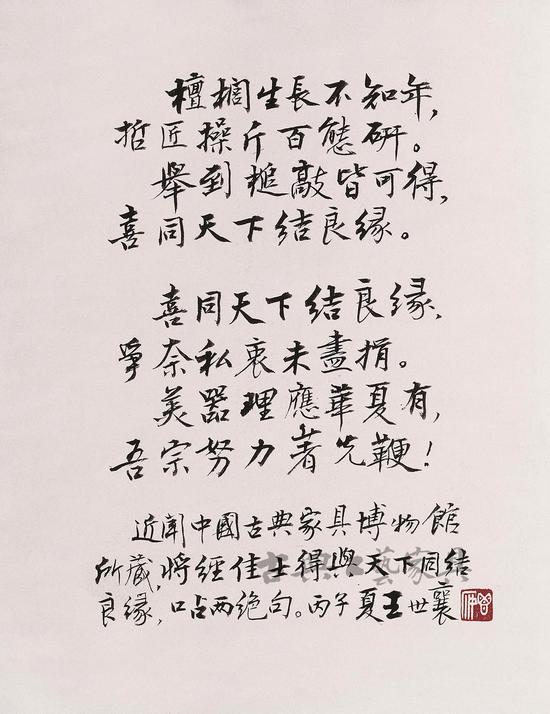 檀榈生長不知年，
哲匠操斤百態研。
舉到槌敲皆可得，
喜同天下結良緣。
喜同天下結良缘，
爭奈私衷未盡捐。
美器理應華夏有，
吾宗努力著先鞭！
近聞中國古典家具博物館
所藏，將經佳士得與天下同結
良緣，口占兩絕句。丙子夏王世襄